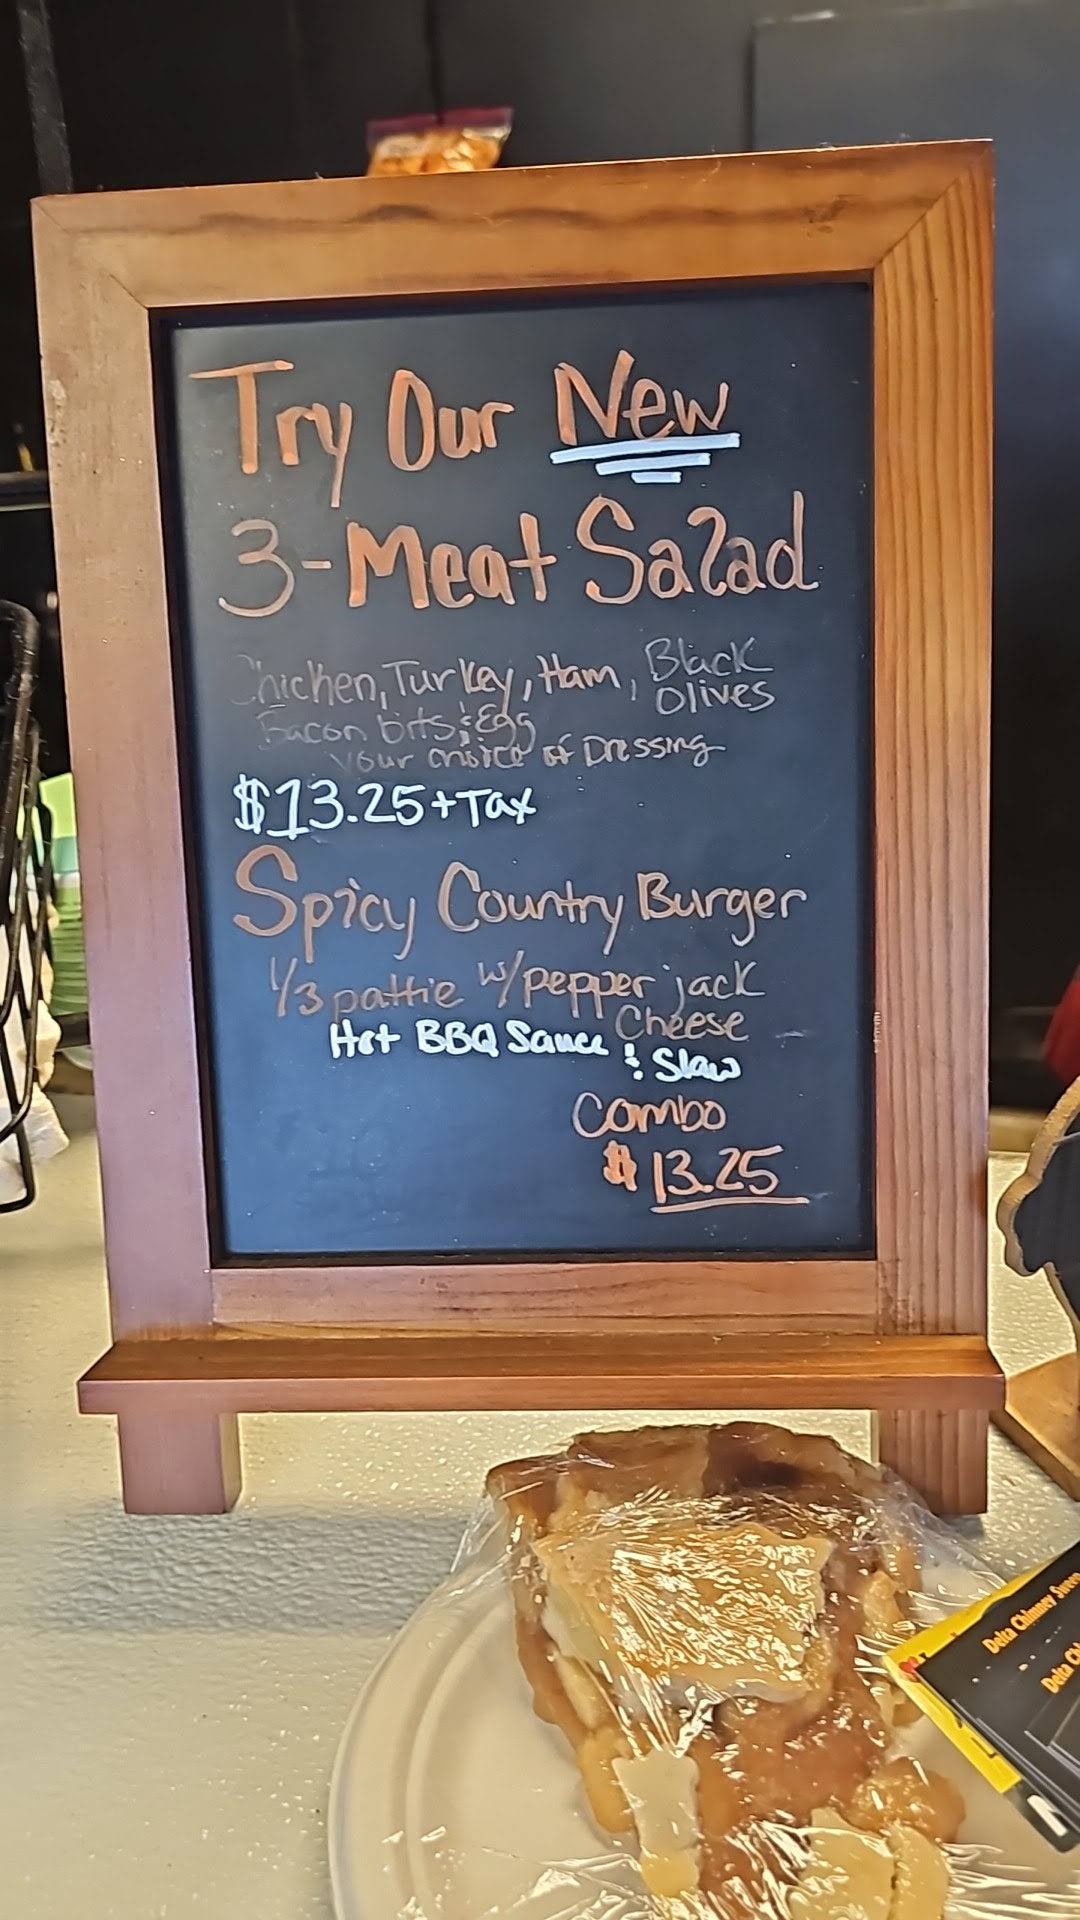 Try Our New
3-Meat Salad
Chicken, Turkey, Ham, Black
Olives
Bacon bits & Egg
your choice of Dressing
$13.25 + Tax
Spicy Country Burger
1/3 pattie w/ pepper jack
Cheese
Hot BBQ Sauce & Slaw
Combo
$13.25
Delta Chimney Sweep
Delta